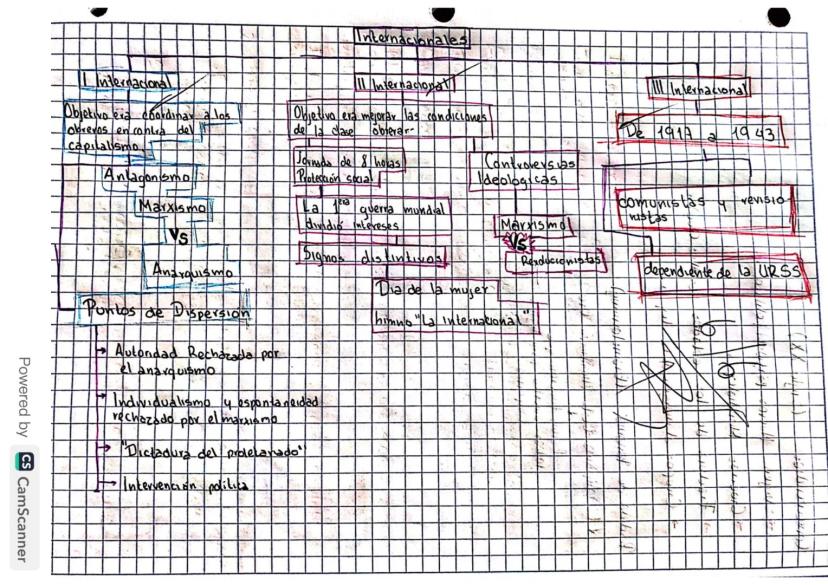 Internacionales
I Internacional
Objetivo era coordinar a los
obreros en contra del
capitalismo
Antagonismo
Marxismo
VS
Anarquismo
Puntos de Dispersion
Autoridad Rechazada por
el anarquismo
Individualismo y espontaneidad
rechazado por el marxismo
"Dictadura del proletariado"
Intervención política
II Internacional
Objetivo era mejorar las condiciones
de la clase obrera
Jornada de 8 horas
Protección social
La 1era guerra mundial
dividio intereses
Signos distintivos
Dia de la mujer
himno "La internacional"
Controversias
Ideologicas
Marxismo
VS
III Internacional
De 1917 a 1943
comunistas y revisio-
nistas
dependiente de la URSS
Powered by CS CamScanner